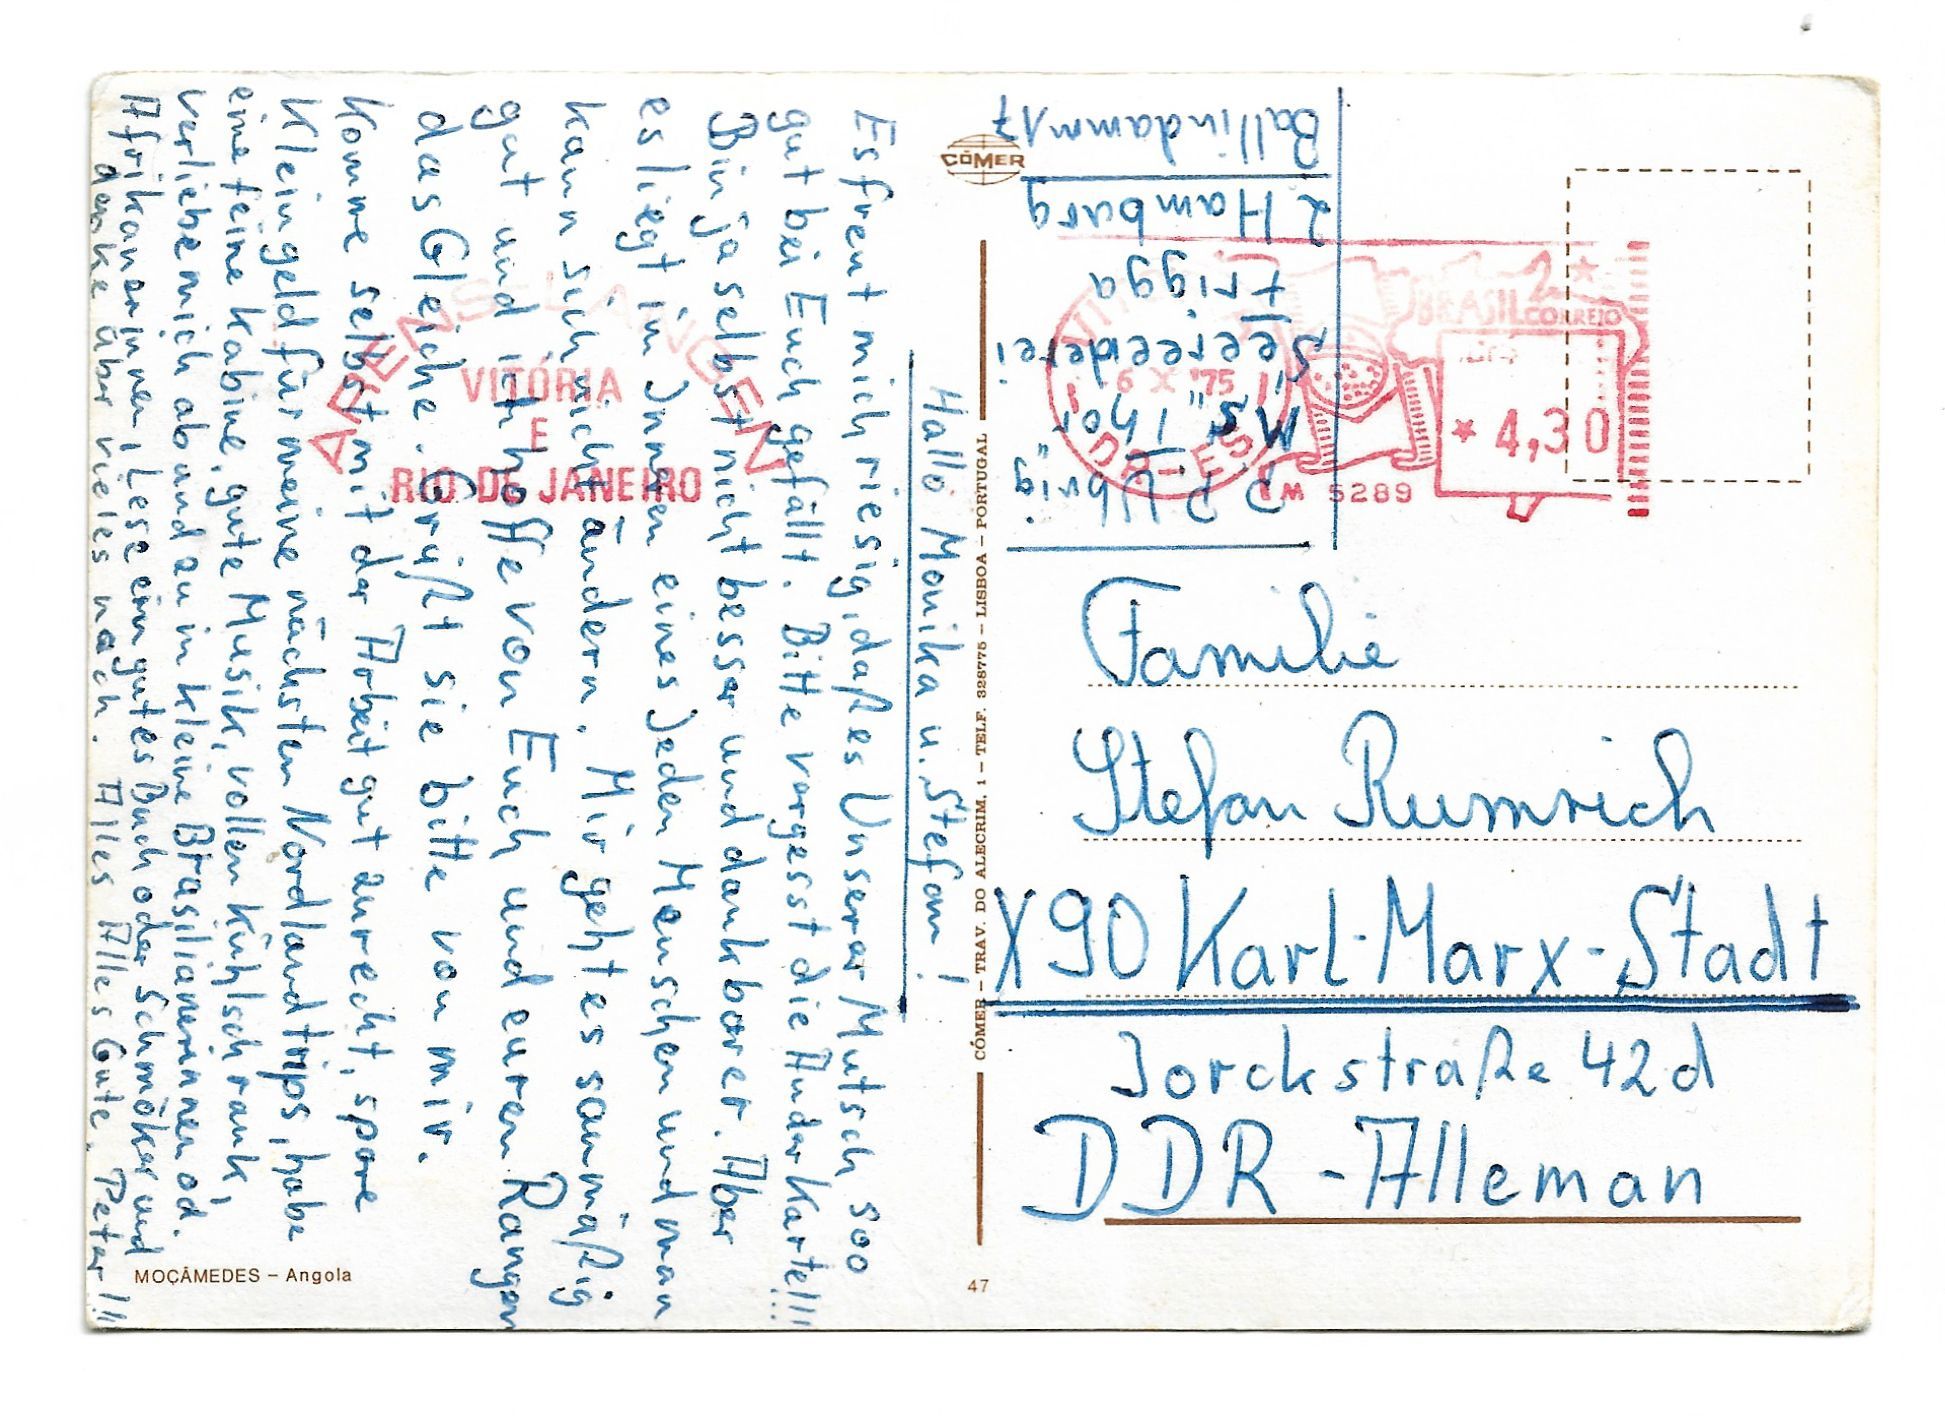 Hallo Monika u. Stefan!
Es freut mich riesig, daß es Unserer Mutsch soo
gut bei Euch gefällt. Bitte vergesst die Ander Karte!!!
Bin ja selbst nicht besser und dankbarer. Aber
es liegt im Inneren eines Jeden Menschen und man
kann sich nicht ändern. Mir geht es saumäßig
gut und ich hoffe von Euch und euren Rangen
das Gleiche. Grüßt sie bitte von mir.
Komme selbst mit der Arbeit gut zurecht, spare
Kleingeld für meine nächsten Nordlandtrips, habe
eine feine Kabine, gute Musik, vollen Kühlschrank,
verliebe mich ab und zu in kleine Brasilianerinnen od.
Afrikanerinnen, Lese ein gutes Buch oder Schmöker und
denke über vieles nach. Alles Alles Gute. Peter!!!
MOÇÂMEDES – Angola
ARENS LANGEN
VITÓRIA
E
RIO DE JANEIRO
CÓMER
CÓMER – TRAV. DO ALECRIM, 1 – TELF. 328775 – LISBOA – PORTUGAL
47
P. Ubrig
MS "Thor"
Seereederei
Frigga
2 Hamburg
Ballindamm 17
6 X '75
BRASIL
CORREIO
* 4,30
5289
Familie
Stefan Rumrich
X90 Karl-Marx-Stadt
Jorckstraße 42d
DDR - Alleman